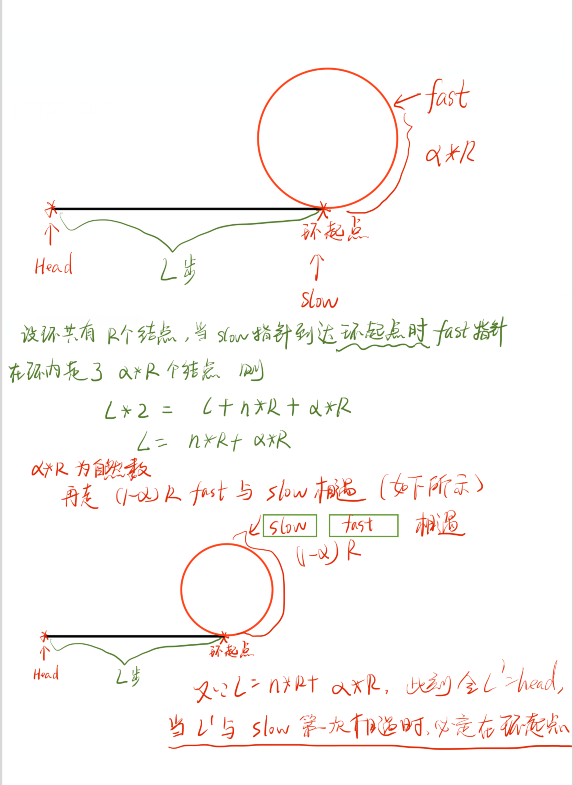 fast
α*R
环起点
Head
L步
slow
设环共有 R个结点,当 slow指针到达环起点时 fast指针
在环内走了 α*R 个结点 则
L*2 = L+n*R+α*R
L= n*R+ α*R
α*R 为自然数
再走 (1-α)R fast 与 slow 相遇 (如下所示)
slow fast 相遇
(1-α)R
环起点
Head
L步
又∵L= n*R+ α*R, 此刻令L'=head,
当 L'与 slow 第一次相遇时,必定在环起点